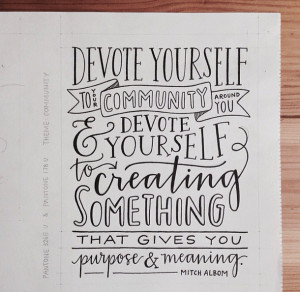 DEVOTE YOURSELF
TO YOUR COMMUNITY AROUND YOU
& DEVOTE
YOURSELF
to creating
SOMETHING
THAT GIVES YOU
purpose & meaning.
MITCH ALBOM
THEME: COMMUNITY